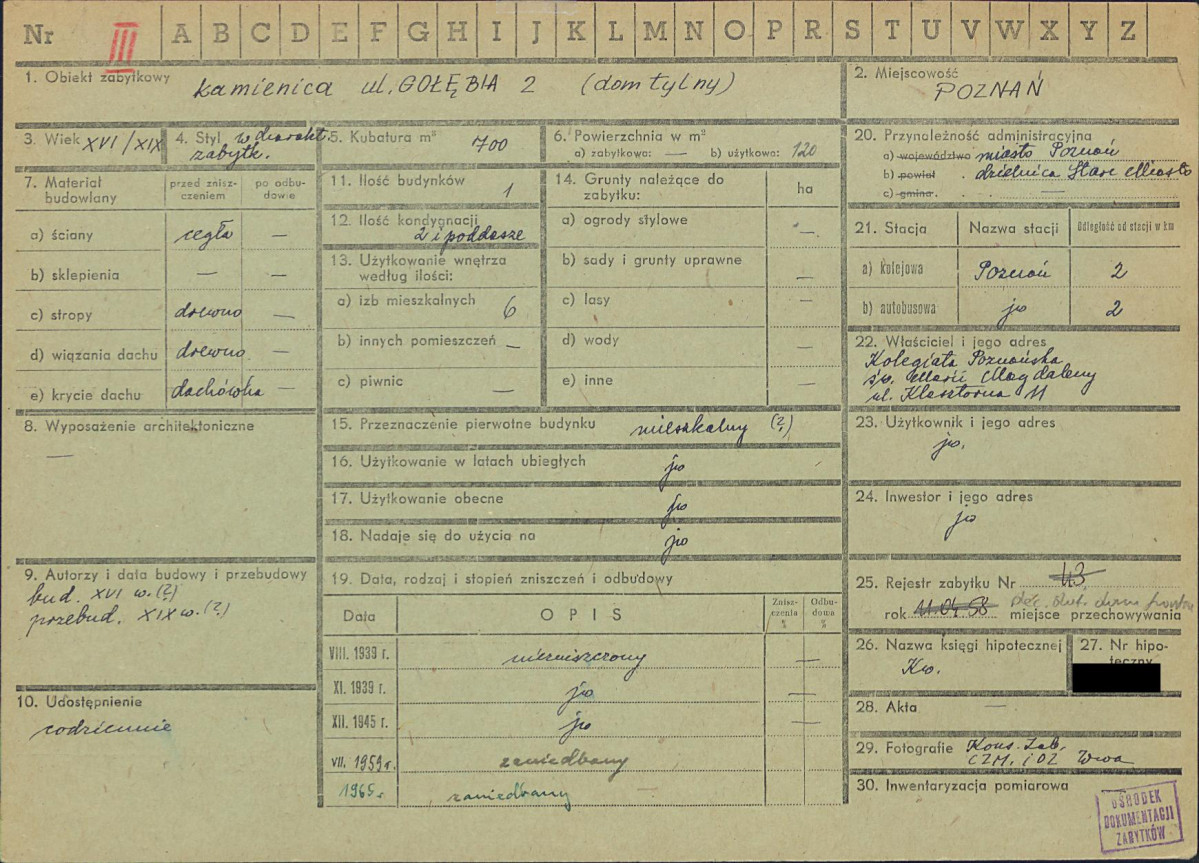 Nr III A B C D E F G H I J K L M N O P R S T U V W X Y Z
1. Obiekt zabytkowy kamienica ul. GOŁĘBIA 2 (dom tylny)
2. Miejscowość
POZNAŃ
3. Wiek XVI/XIX
4. Styl w charakt.
zabytk.
5. Kubatura m³ 700
6. Powierzchnia w m²
a) zabytkowa: — b) użytkowa: 120
20. Przynależność administracyjna
a) województwo miasto Poznań
b) powiat . dzielnica Stare Miasto
c) gmina . —
7. Materiał budowlany
przed zniszczeniem
po odbudowie
a) ściany cegła —
b) sklepienia — —
c) stropy drewno —
d) wiązania dachu drewno —
e) krycie dachu dachówka —
11. Ilość budynków 1
12. Ilość kondygnacji
2 i poddasze
13. Użytkowanie wnętrza
według ilości:
a) izb mieszkalnych 6
b) innych pomieszczeń —
c) piwnic —
14. Grunty należące do
zabytku:
ha
a) ogrody stylowe —
b) sady i grunty uprawne —
c) lasy —
d) wody —
e) inne —
21. Stacja Nazwa stacji Odległość od stacji w km
a) kolejowa Poznań 2
b) autobusowa jw 2
22. Właściciel i jego adres
Kolegiata Poznańska
św. Marii Magdaleny
ul. Klasztorna 11
8. Wyposażenie architektoniczne
—
15. Przeznaczenie pierwotne budynku mieszkalny (?)
16. Użytkowanie w latach ubiegłych jw
17. Użytkowanie obecne jw
18. Nadaje się do użycia na jw
23. Użytkownik i jego adres
jw.
24. Inwestor i jego adres
jw
9. Autorzy i data budowy i przebudowy
bud. XVI w. (?)
przebud. XIX w. (?)
19. Data, rodzaj i stopień zniszczeń i odbudowy
Data OPIS Zniszczenia % Odbudowa %
VIII. 1939 r. niezniszczony —
XI. 1939 r. jw —
XII. 1945 r. jw —
VII. 1959 r. zaniedbany
1965 r zaniedbany
25. Rejestr zabytku Nr 43
rok 11.04.58 miejsce przechowywania
26. Nazwa księgi hipotecznej
Kw.
27. Nr hipoteczny
10. Udostępnienie
codziennie
28. Akta —
29. Fotografie Kons. Zab.
CZM. i OZ Wwa
30. Inwentaryzacja pomiarowa
OŚRODEK
DOKUMENTACJI
ZABYTKÓW